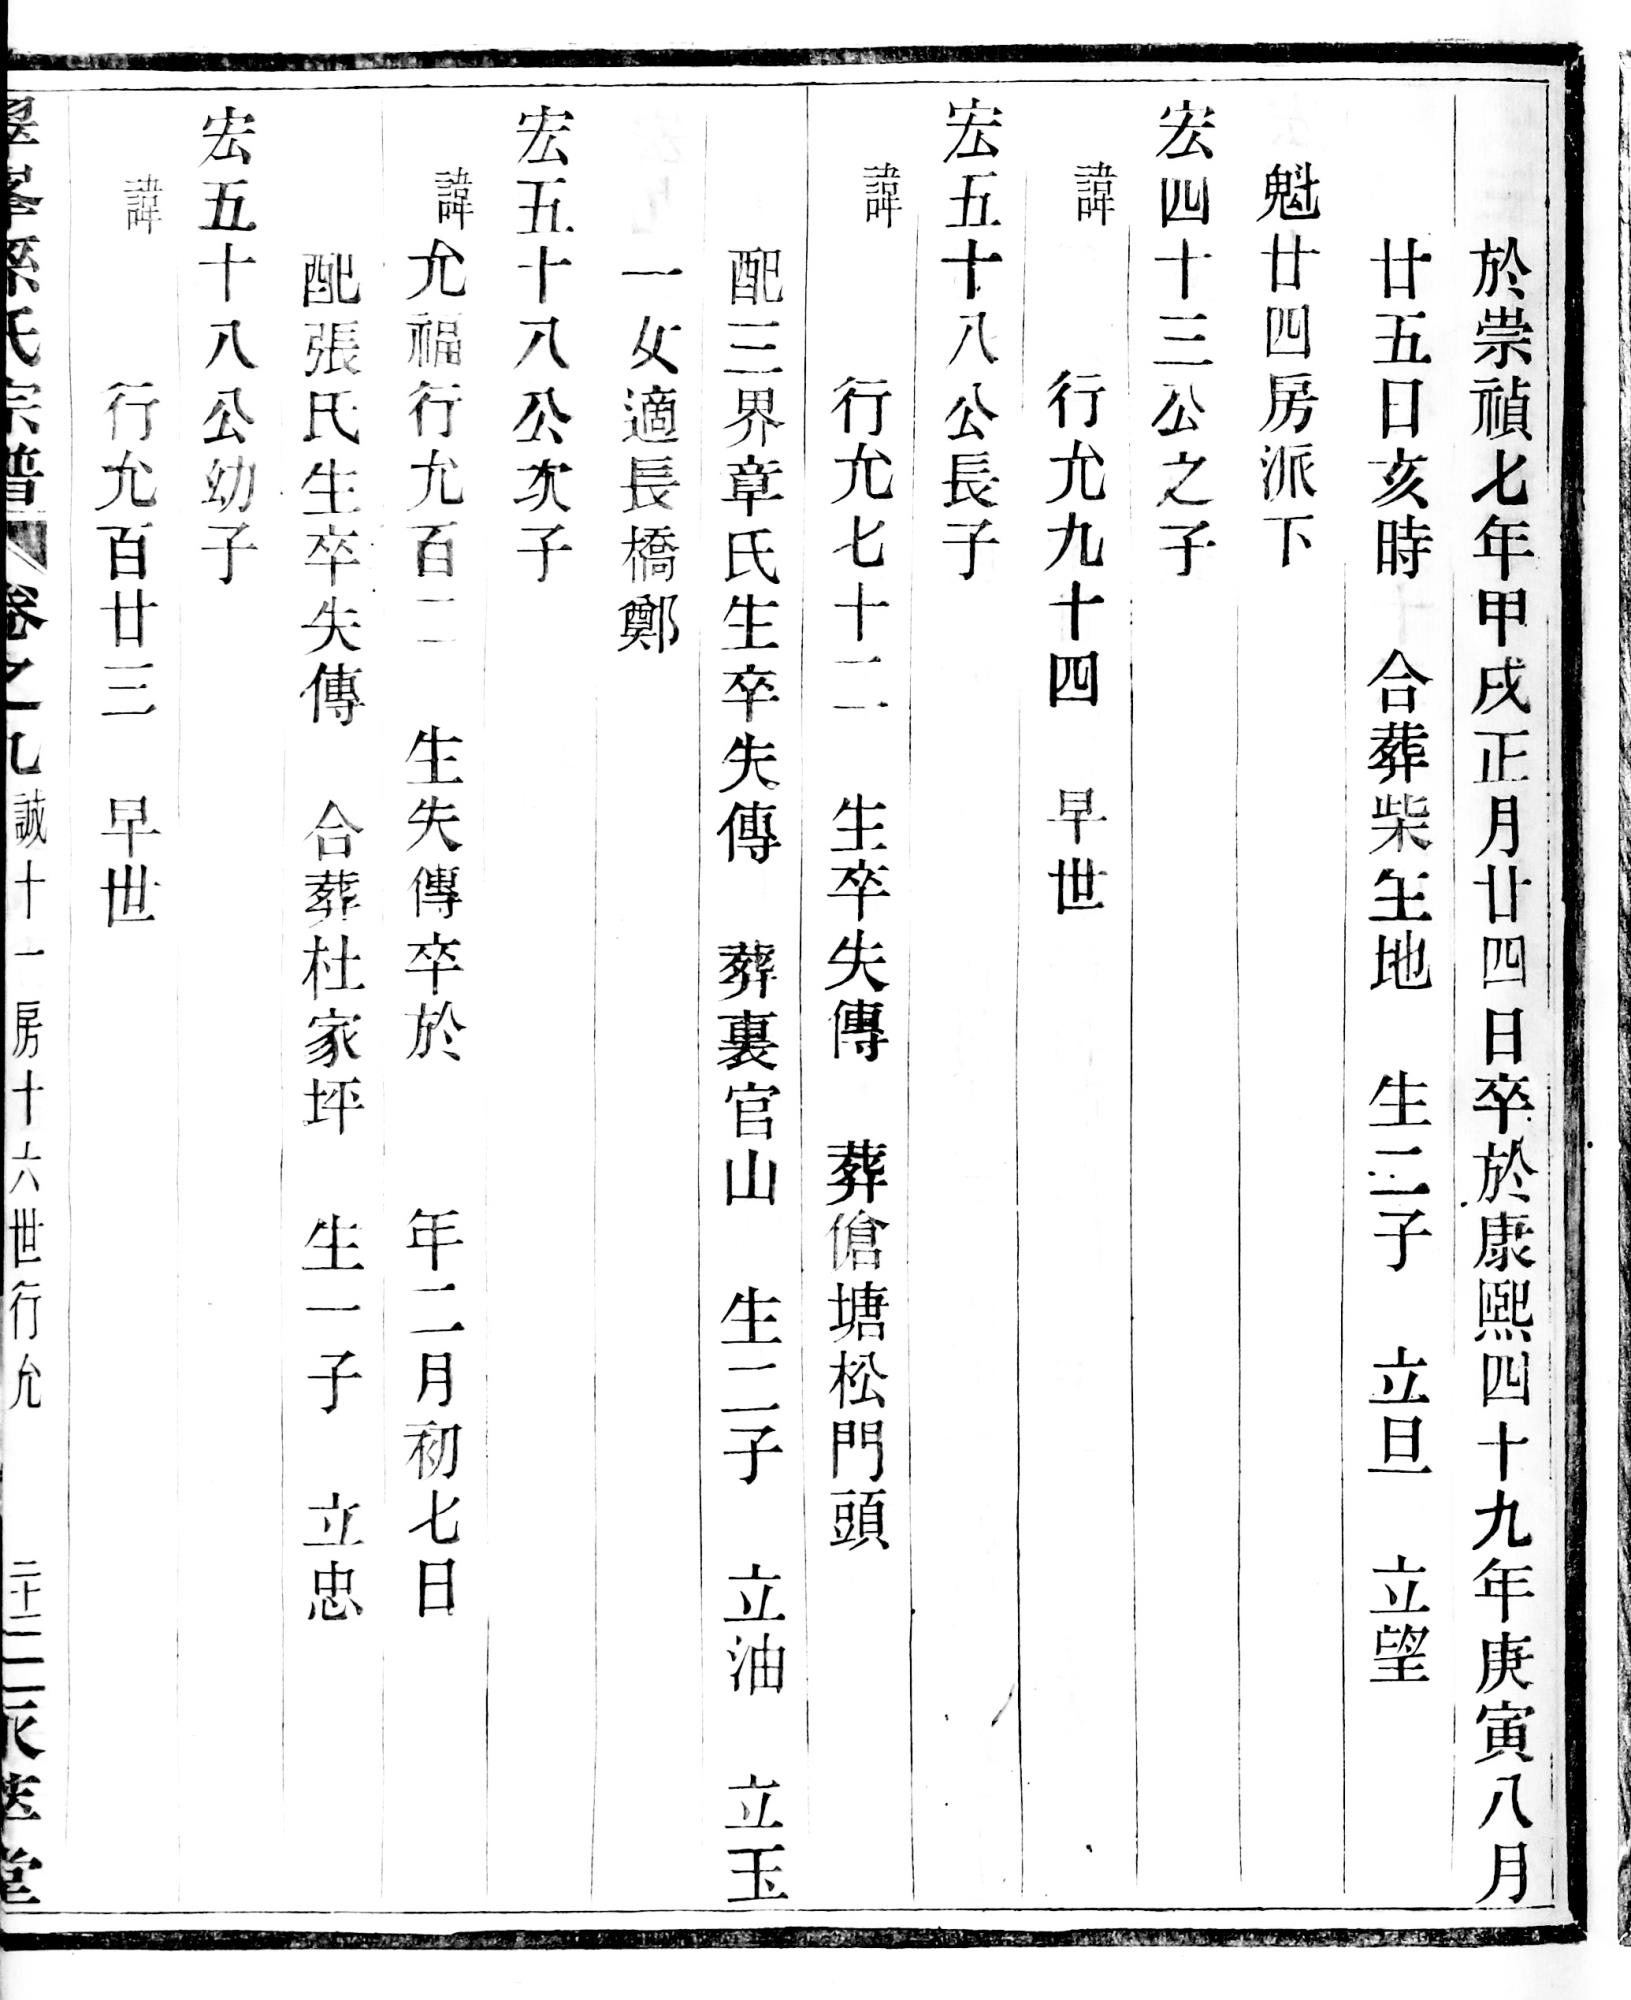 於崇禎七年甲戌正月廿四日卒於康熙四十九年庚寅八月
廿五日亥時 合葬柴𡉄地 生二子 立旦 立望
魁廿四房派下
宏四十三公之子
諱 行允九十四 早世
宏五十八公長子
諱 行允七十二 生卒失傳 葬傖塘松門頭
配三界章氏生卒失傳 葬裏官山 生二子 立油 立玉
一女適長橋鄭
宏五十八公次子
諱允福行允百二 生失傳卒於 年二月初七日
配張氏生卒失傳 合葬杜家坪 生一子 立忠
宏五十八公幼子
諱 行允百廿三 早世
翠峯孫氏宗譜 卷之九 誠十一房十六世行允 二十二 永萃堂